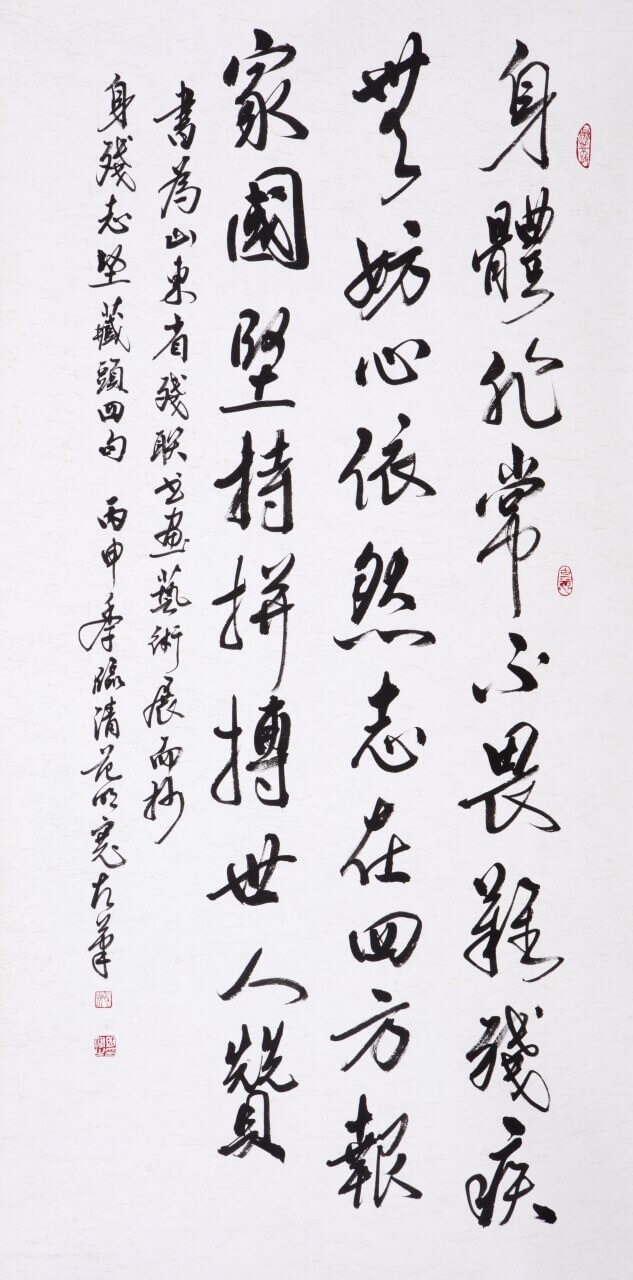 身體非常不畏難殘疾
無妨心依然志在四方報
家國堅持拼搏世人贊
書為山東省殘联书画藝術展而抄
身殘志堅藏頭四句 丙申年臨清范明寬左筆